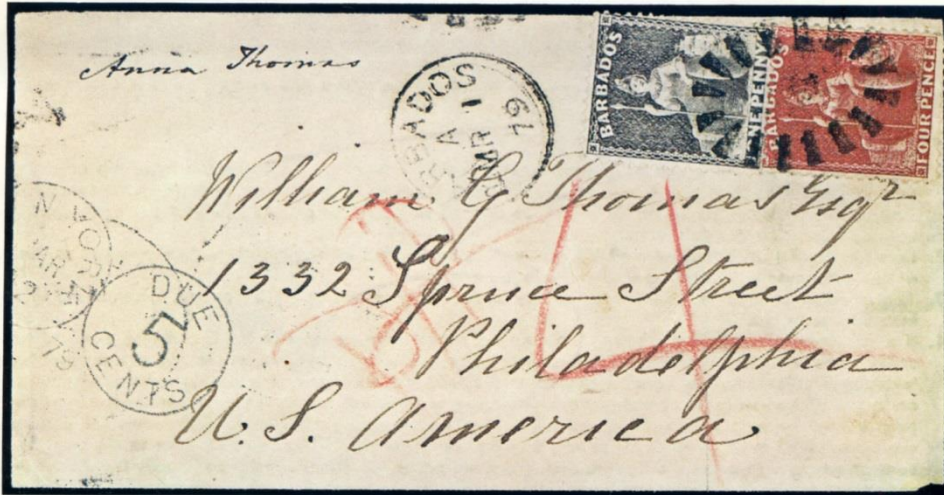 Anna Thomas
BARBADOS
A
MR 1
79
BARBADOS
ONE PENNY
BARBADOS
FOUR PENCE
William G Thomas Esqr
1332 Spruce Street
Philadelphia
U.S. America
4
DUE
5
CENTS